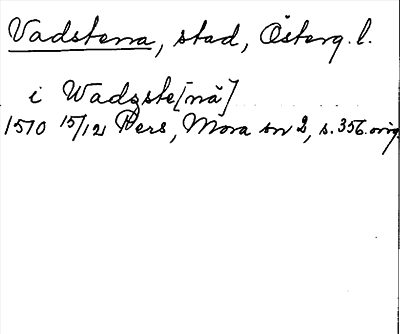 Vadstena, stad, Österg. l.
i Wadzste[nå]
1510 15/12 Pers, Mora sn 2, s. 356. orig.